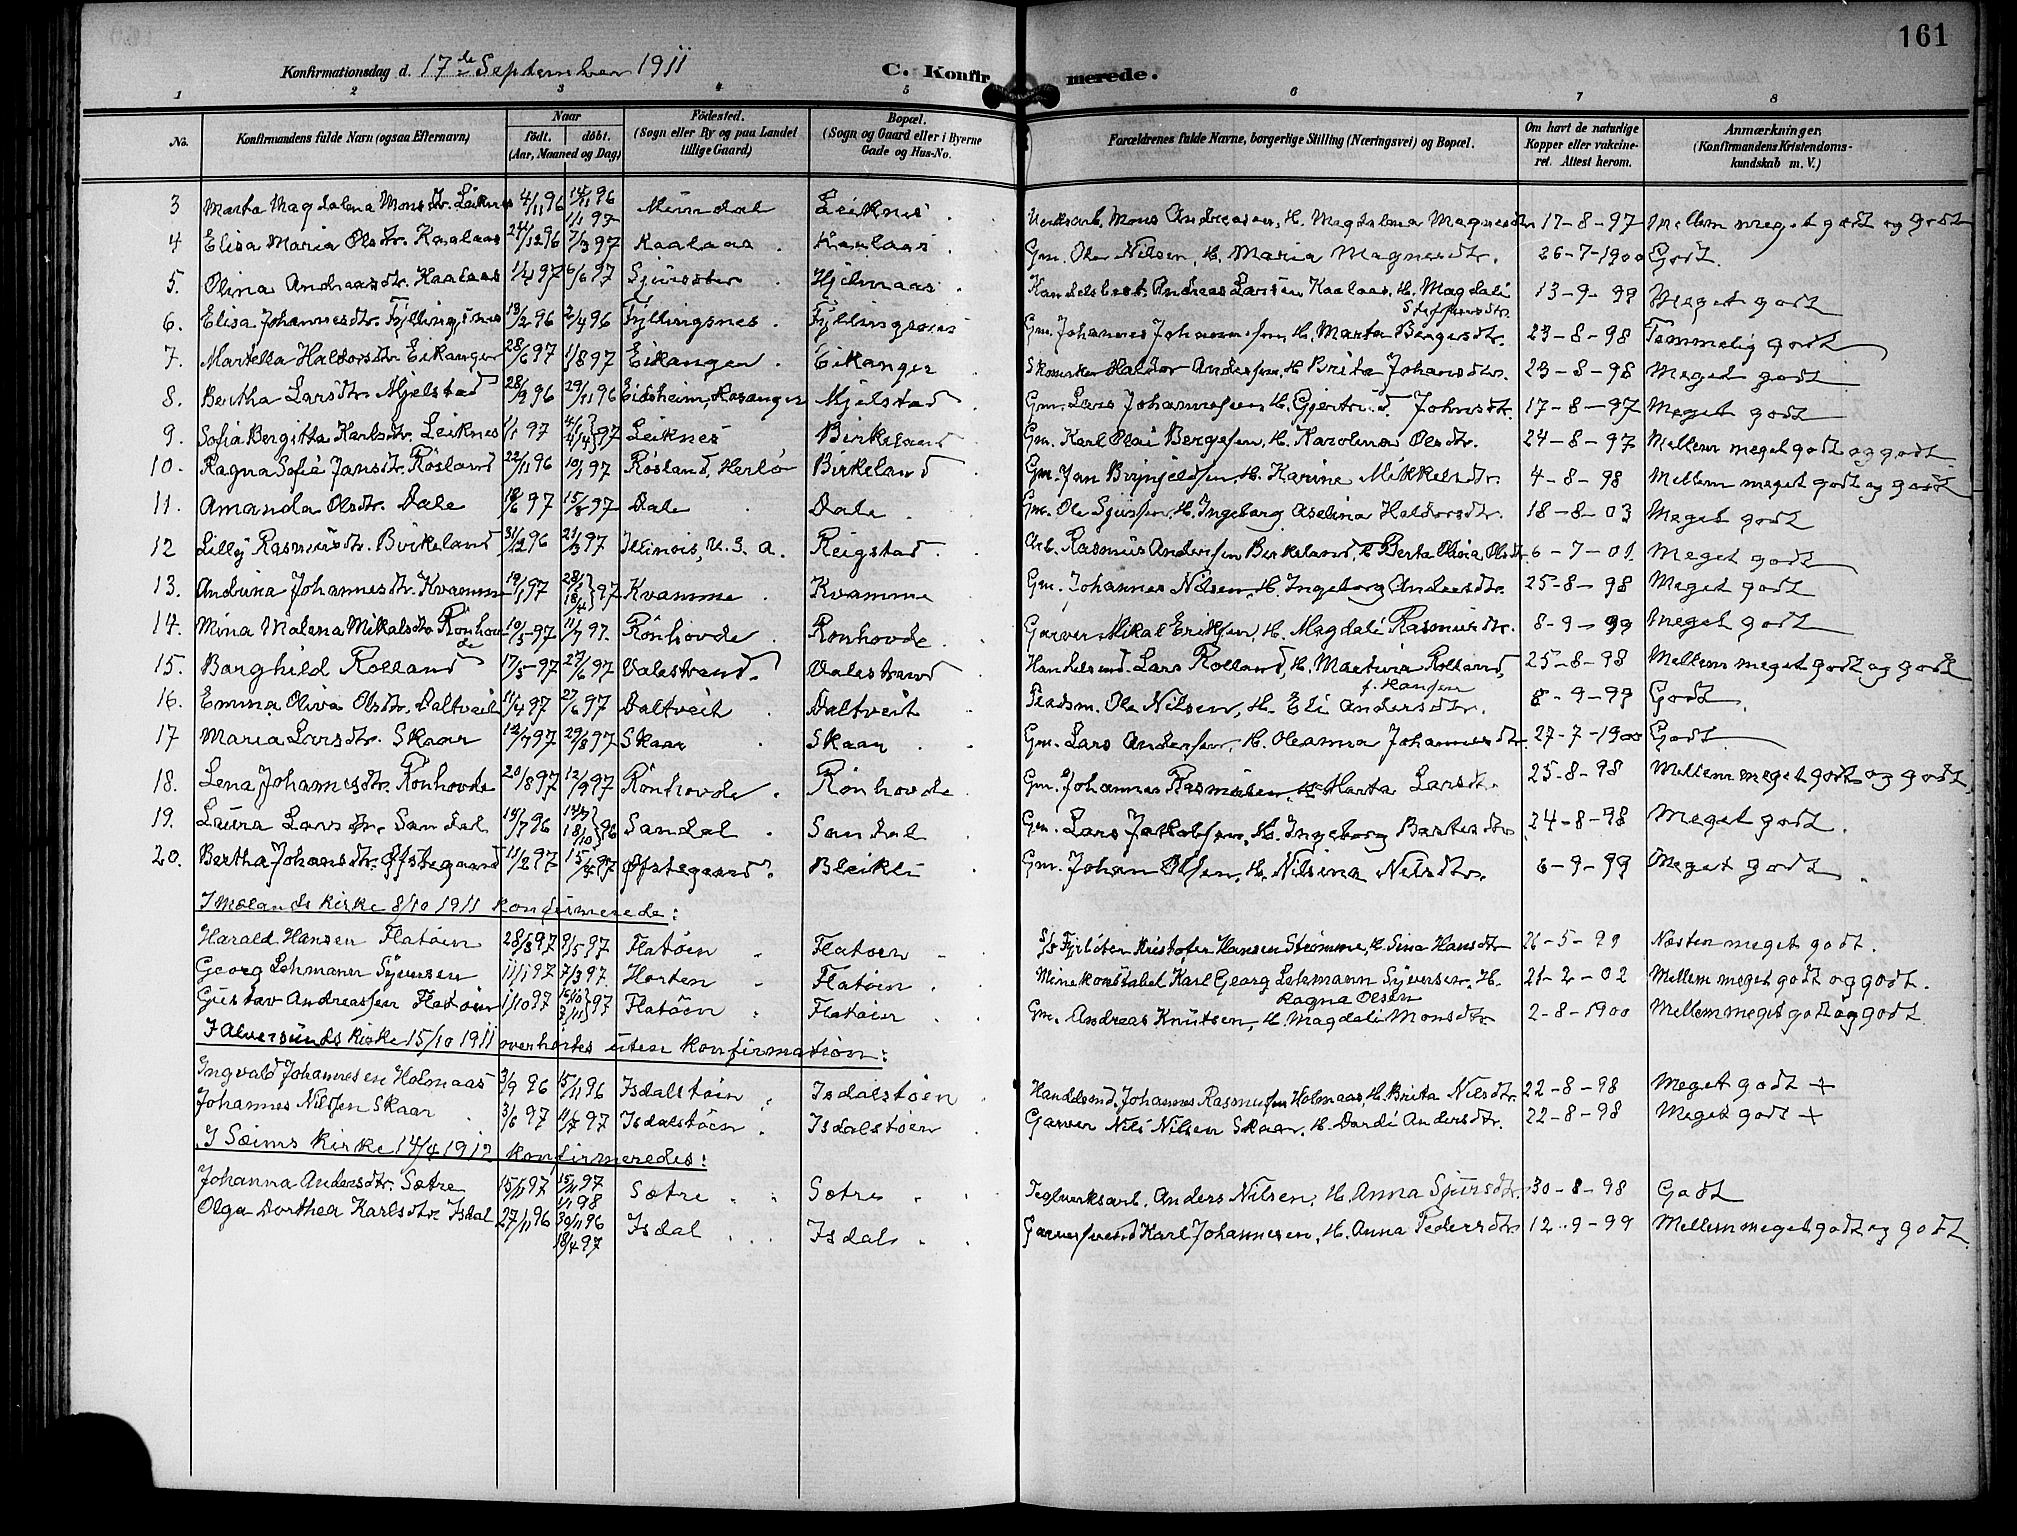 161
Konfirmationsdag d. 17de September 1911 C. Konfirmerede.
1 2 3 4 5 6 7 8
No. Konfirmandens fulde Navn (ogsaa Efternavn) Naar født. døbt. (Aar, Maaned og Dag) Fødested. (Sogn eller By og paa Landet tillige Gaard) Bopæl. (Sogn og Gaard eller i Byerne Gade og Hus-No. Forældrenes fulde Navne, borgerlige Stilling (Næringsvei) og Bopæl. Om havt de naturlige Kopper eller vakcineret. Attest herom. Anmærkninger. (Konfirmandens Kristendomskundskab m. V.)
3 Marta Magdalena Monsdtr. Leiknes 4/11 96 Leiknes Mons Andreassen, H. Magdalena Magnesdtr 17-8-97 Mellem meget godt og godt
4 Elisa Maria Olsdtr. Kaalaas 24/12 96 7/3 97 Kaalaas Kaalaas Gm. Ole Nilsen, H. Maria Magnesdtr. 26-7-1900 Godt.
5. Olina Andreasdtr. Kaalaas 1/4 97 6/6 97 Hjelmaas Andreas Larsen Kaalaas, H. Magdali Steffensdtr. 13-9-99 Meget godt
6. Elisa Johannesdtr. Fyllingsnes 13/2 96 2/4 96 Fyllingsnes Fyllingsnes Gm. Johannes Johannessen, H. Marta Børgesdtr. 23-8-98 Temmelig godt
7. Martella Haldorsdtr. Eikanger 28/6 97 1/8 97 Eikanger Eikanger Skomaker Haldor Andersen, H. Brita Johansdtr. 23-8-98 Meget godt
8. Bertha Larsdtr. Mjelstad 28/9 96 29/11 96 Eidsheim, Hosanger Mjelstad Gm. Lars Johannesen, H. Gjertrud Johnsdtr. 17-8-97 Meget godt
9. Sofia Bergitta Karlsdtr. Leiknes 1/1 97 4/1 4/4 } 97 Leiknes Birkeland Gm. Karl Olai Bergesen, H. Karolina Olsdtr. 24-8-97 Mellem meget godt og godt.
10. Ragna Sofie Jansdtr. Røsland 22/11 96 10/1 97 Røsland, Herlø Birkeland Gm. Jan Brynjeldsen, H. Karine Mikkelsdtr. 4-8-98 Mellem meget godt og godt
11. Amanda Olsdtr. Dale 18/6 97 15/8 97 Dale Dale Gm. Ole Sjursen, H. Ingeborg Aselina Haldorsdtr. 18-8-03 Meget godt
12 Lilly Rasmusdtr. Birkeland 31/12 96 21/3 97 Illinois, U.S.A. Reigstad Arb. Rasmus Andersen Birkeland, H. Berta Olina Olsdtr. 6-7-01. Meget godt
13. Andrina Johannesdtr. Kvamme 19/1 97 28/1 18/4 } 97 Kvamme Kvamme Gm. Johannes Nilsen, H. Ingeborg Andersdtr. 25-8-98 Meget godt
14. Mina Malena Mikalsdtr. Rønhovde 10/5-97 11/7 97. Rønhovde Rønhovde Garver Mikal Eriksen, H. Magdali Rasmusdtr. 8-9-99 Meget godt
15. Borghild Rolland 17/5-97 27/6 97 Valestrand. Valestrand Handelsmd. Lars Rolland, H. Martina Rolland, f. Hansen 25-8-98 Mellem meget godt og godt
16. Emma Oliva Olsdtr. Daltveit 11/4 97 27/6 97 Daltveit Daltveit Pladsm. Ole Nilsen, H. Eli Andersdtr. 8-9-99 Godt.
17 Maria Larsdtr. Skaar 12/7 97 29/8 97 Skaar Skaar Gm. Lars Andersen, H. Oleanna Johannesdtr. 27-7-1900 Godt
18. Lena Johannesdtr. Rønhovde 20/8 97 12/9 97 Rønhovde Rønhovde Gm. Johannes Rasmusen, H. Marta Larsdt. 25-8-98 Mellem meget godt og godt
19. Laura Larsdtr. Sandal 19/7 96 18/10 } 96 Sandal Sandal Gm. Lars Jakobsen, H. Ingeborg Bastesdtr 24-8-98 Meget godt.
20. Bertha Johansdtr. Øfstegaard 11/2 97 15/4 97 Øfstegaard. Bleikli Gm. Johan Olsen, H. Nilsina Nilsdtr. 6-9-99 Meget godt
I Mælands kirke 8/10 1911 konfirmerede:
Harald Hansen Flatøen 28/3 97 9/5 97 Flatøen Flatøen Kristofer Hansen Strømme, H. Sina Hansdtr 26-5-99 Næsten meget godt.
Georg Lehmann Syversen 11/1 97 7/3 97. Horten Flatøen Minekonstabel Karl Georg Lehmann Syversen, H. Ragna Olsen 21-2-02 Mellem meget godt og godt.
Gustav Andreassen Flatøen 1/10 97 Flatøen Flatøen Gm. Andreas Knutsen, H. Magdali Monsdtr. 2-8-1900 Mellem meget godt og godt
I Alversunds kirke 15/10 1911 overhørtes uten konfirmation:
Ingvald Johannesen Holmaas 3/9 96 15/11 96 Isdalstøen Isdalstøen Handelsmd. Johannes Rasmusen Holmaas, H. Brita Nilsdtr. 22-8-98 Meget godt +
Johannes Nilssen Skaar 3/6 97 Isdalstøen Isdalstøen Garver Nils Nilsen Skaar, H. Dordi Andersdtr. 22-8-98 Meget godt +
I Sæims kirke 14/4 1912 konfirmeredes:
Johanna Andersdtr. Sætre 97 15/11 97 1/1 98 Sætre Sætre Teglverksarb. Anders Nilsen, H. Anna Sjursdtr. 30-8-98 Godt
Olga Dorthea Karlsdtr. Isdal 27/11 96 30/11 96 18/4 97 Isdal Isdal Garversvend Karl Johannesen, H. Anna Pedersdtr 12-9-99 Mellem meget godt og godt.